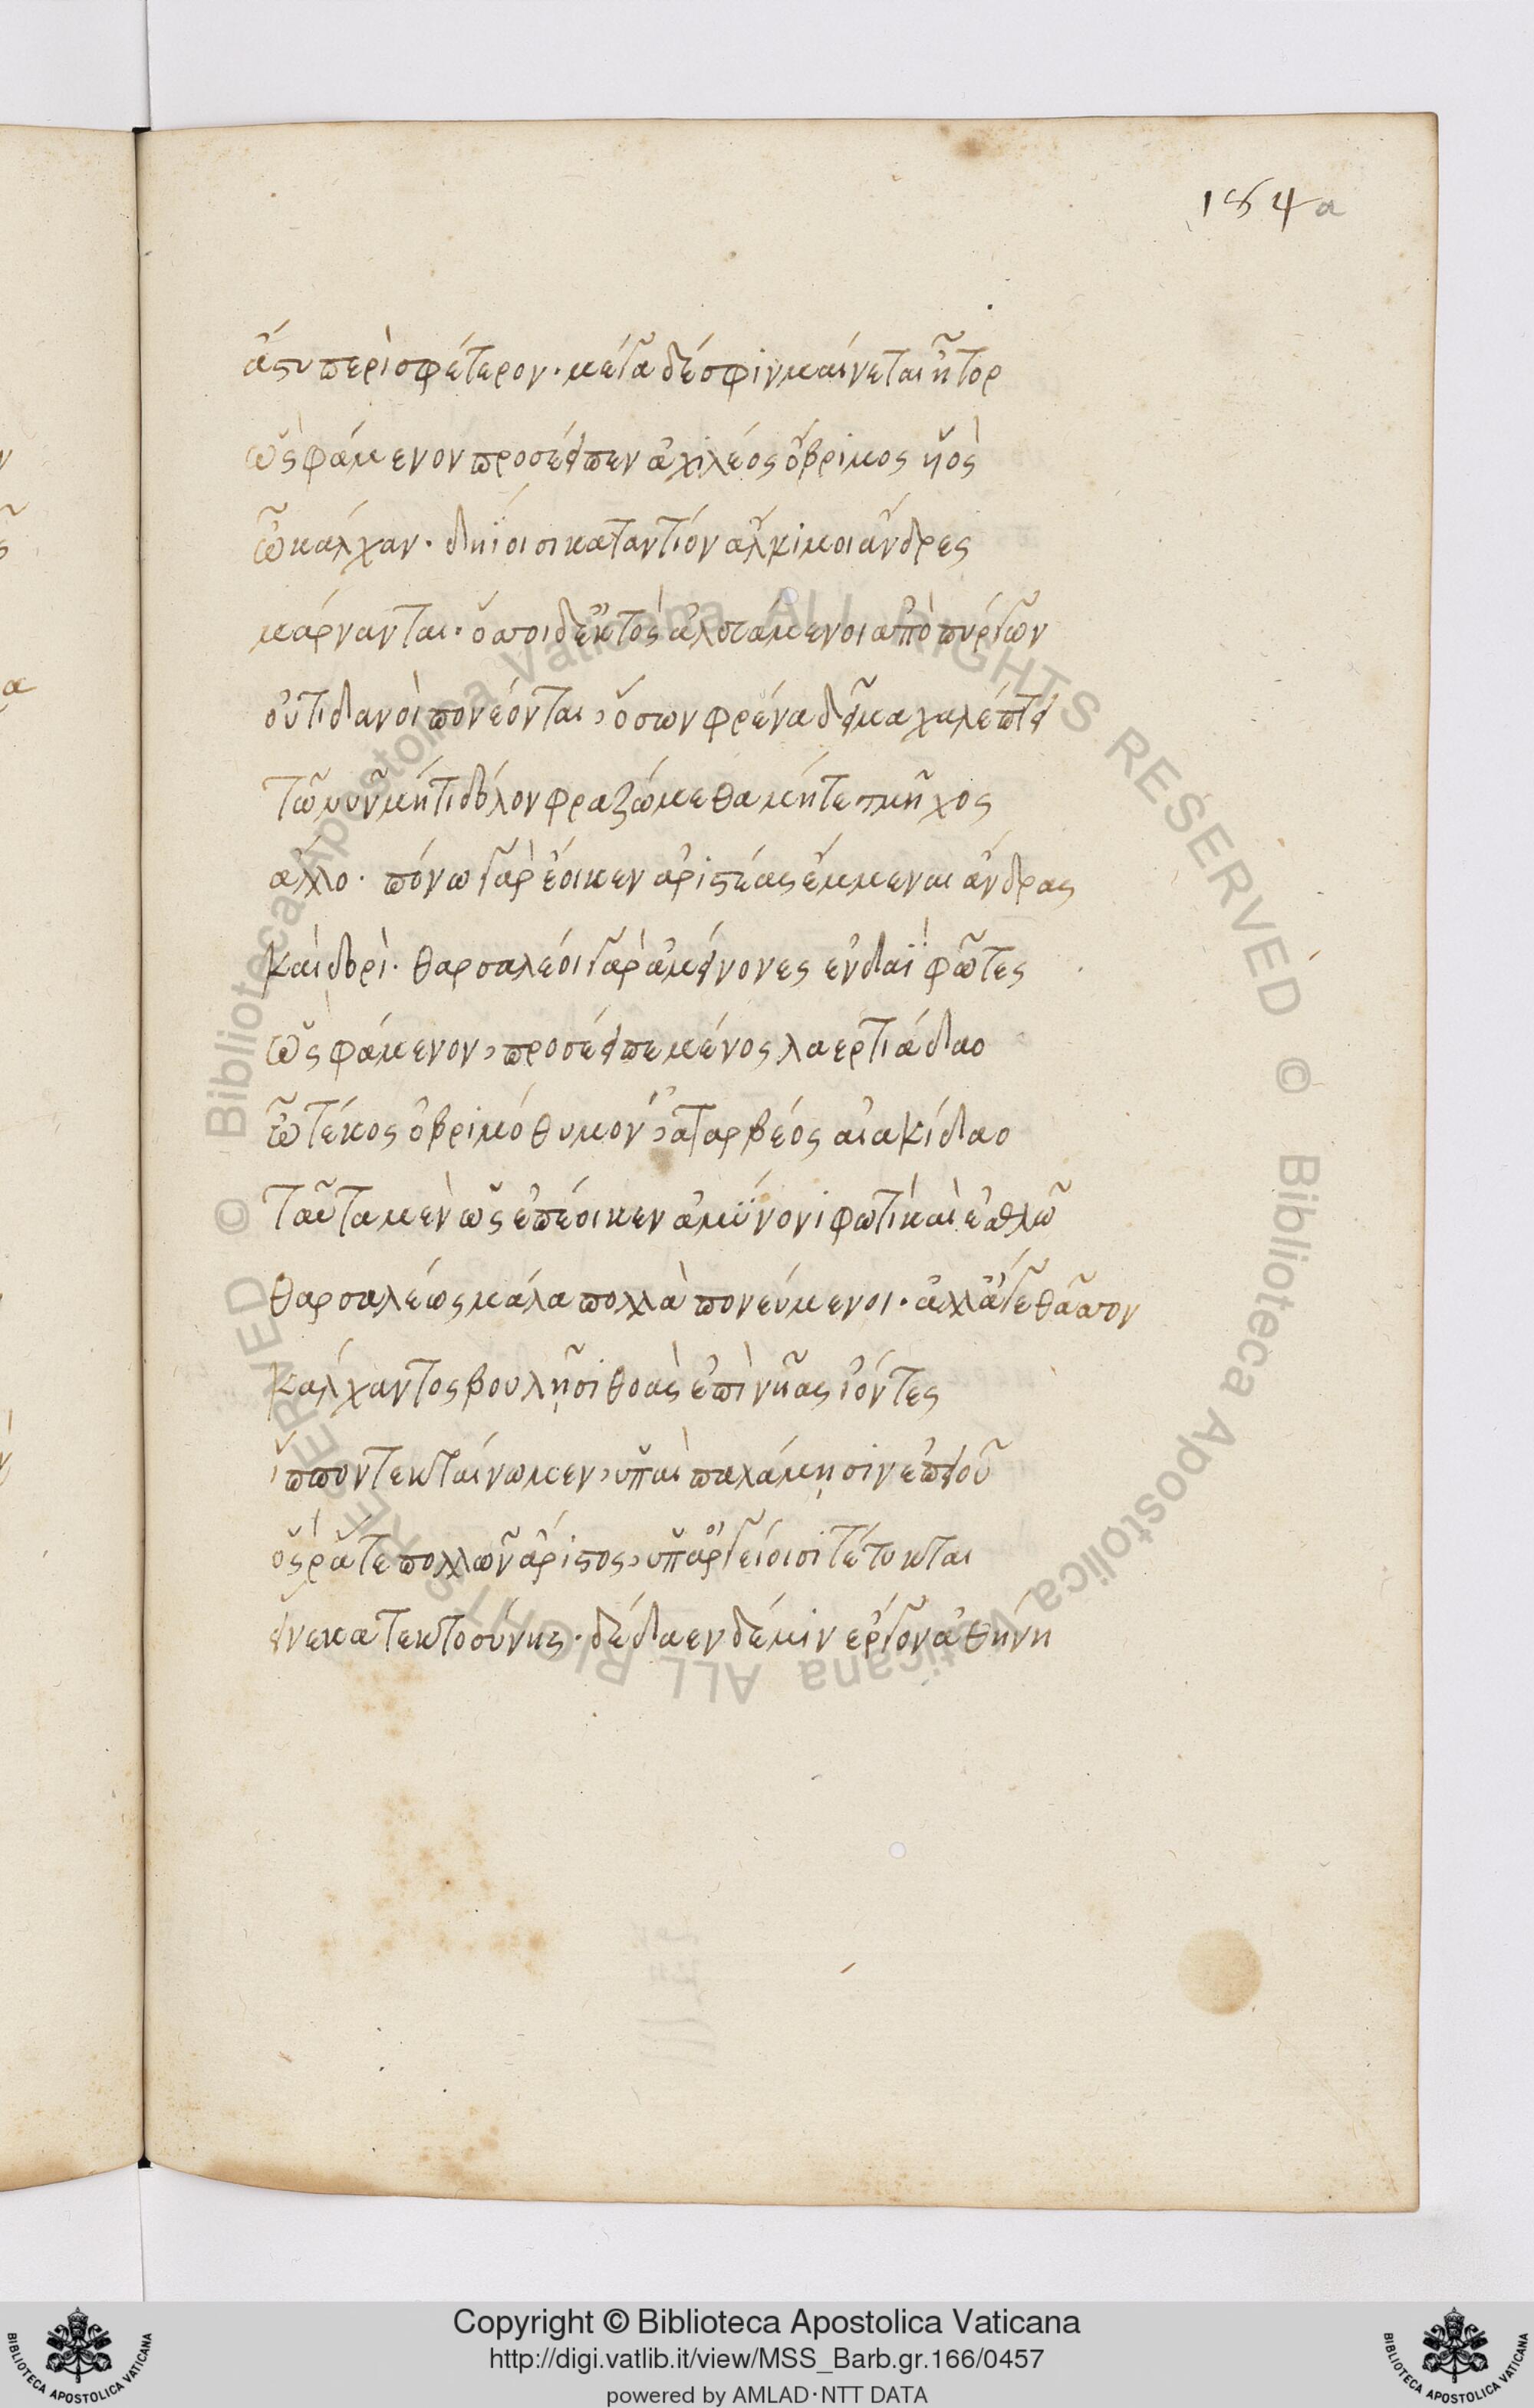 154a
ἄστυ περὶ σφέτερον· μέγα δέ σφιν μαίνεται ἦτορ
ὣς φάμενον προσέειπεν ἀχιλέος ὄβριμος υἱὸς
ὦ κάλχαν· δηΐοισι καταντίον ἄλκιμοι ἄνδρες
μάρνανται· ὅσσοι δ' ἐκτὸς ἀλευάμενοι ἀπὸ πύργων
οὐτιδανοὶ πονέονται, ὅσων φρένα δεῖμα χαλέπτει
τῶ νῦν μήτι δόλον φραζώμεθα μήτέ τι μῆχος
ἄλλο· πόνω γὰρ ἔοικεν ἀριστέας ἔμμεναι ἄνδρας
καὶ δορί· θαρσαλέοι γὰρ ἀμείνονες ἐν δαῒ φῶτες
ὣς φάμενον, προσέειπε μένος λαερτιάδαο
ὦ τέκος ὀβριμόθυμον, ἀταρβέος αἰακίδαο
ταῦτα μὲν ὡς ἐπέοικεν ἀμύμονι φωτὶ καὶ ἐσθλῶ
θαρσαλέως μάλα πολλὰ πονεύμενοι· ἀλλ' ἄγε θᾶσσον
κάλχαντος βουλῇσι θοὰς ἐπὶ νῆας ἰόντες
ἵππον τεκταίνωμεν, ὑπαὶ παλάμῃσιν ἐπειοῦ
ὅς ῥά τε πολλῶν ἄριστος, ὑπ' ἀργείοισι τέτυκται
εἵνεκα τεκτοσύνης· δέδαεν δέ μιν ἔργον ἀθήνη
Copyright © Biblioteca Apostolica Vaticana
http://digi.vatlib.it/view/MSS_Barb.gr.166/0457
powered by AMLAD·NTT DATA
© Biblioteca Apostolica Vaticana ALL RIGHTS RESERVED © Biblioteca Apostolica Vaticana ALL RIGHTS RESERVED
BIBLIOTECA APOSTOLICA VATICANA
BIBLIOTECA APOSTOLICA VATICANA